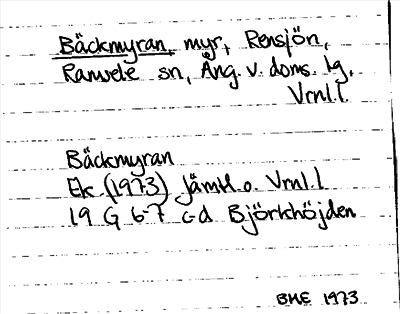 Bäckmyran, myr, Rensjön,
Ramsele sn, Ång. v. doms. lg,
Vrnl.l.
Bäckmyran
Ek (1973) Jämtl.o. Vrnl.l
19 G 6-7 c-d Björkhöjden
BHE 1973